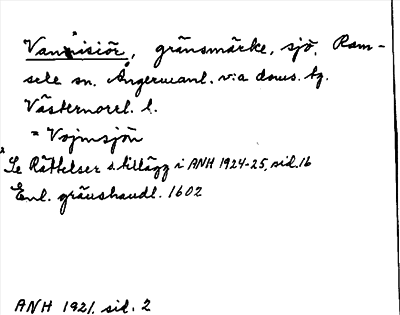 Vanmisiör, gränsmärke, sjö, Ram-
sele sn. Ångermanl. v:a doms. tg.
Västernorrl. l.
= Vojmsjön
x Se Rättelser o. tillägg i ANH 1924-25, sid. 16
Enl. gränshandl. 1602
ANH 1921, sid. 2